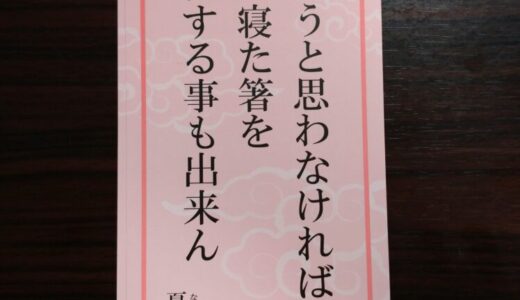 うと思わなければ
寝た箸を
する事も出来ん
夏